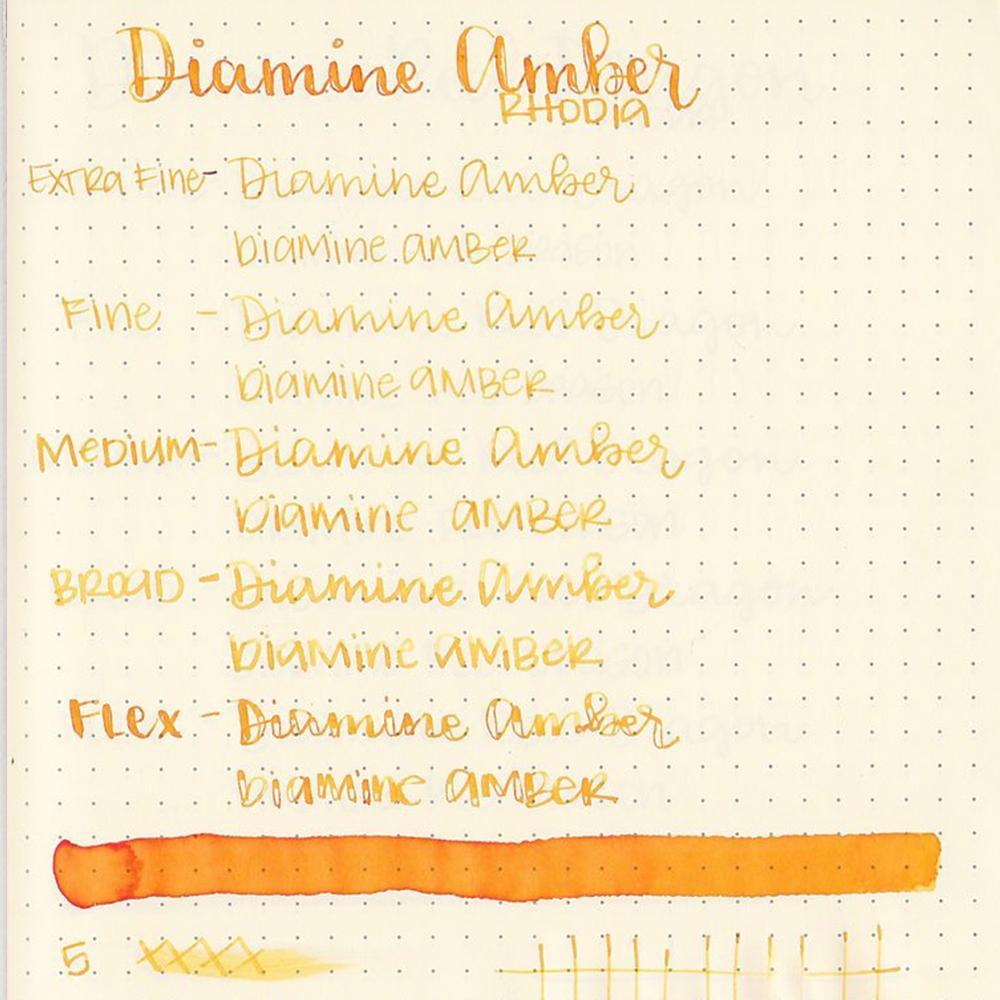 Diamine Amber
RHODIA
Extra Fine - Diamine Amber
Diamine AMBER
Fine - Diamine Amber
Diamine AMBER
Medium - Diamine Amber
Diamine AMBER
BROAD - Diamine Amber
Diamine AMBER
Flex - Diamine Amber
Diamine AMBER
5